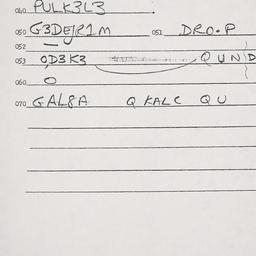 040 PULK3L3
050 G3DEJR1M 051 DRO.P
052
053 0,D3K3 QUND
060 O
070 GAL8A Q KALC QU